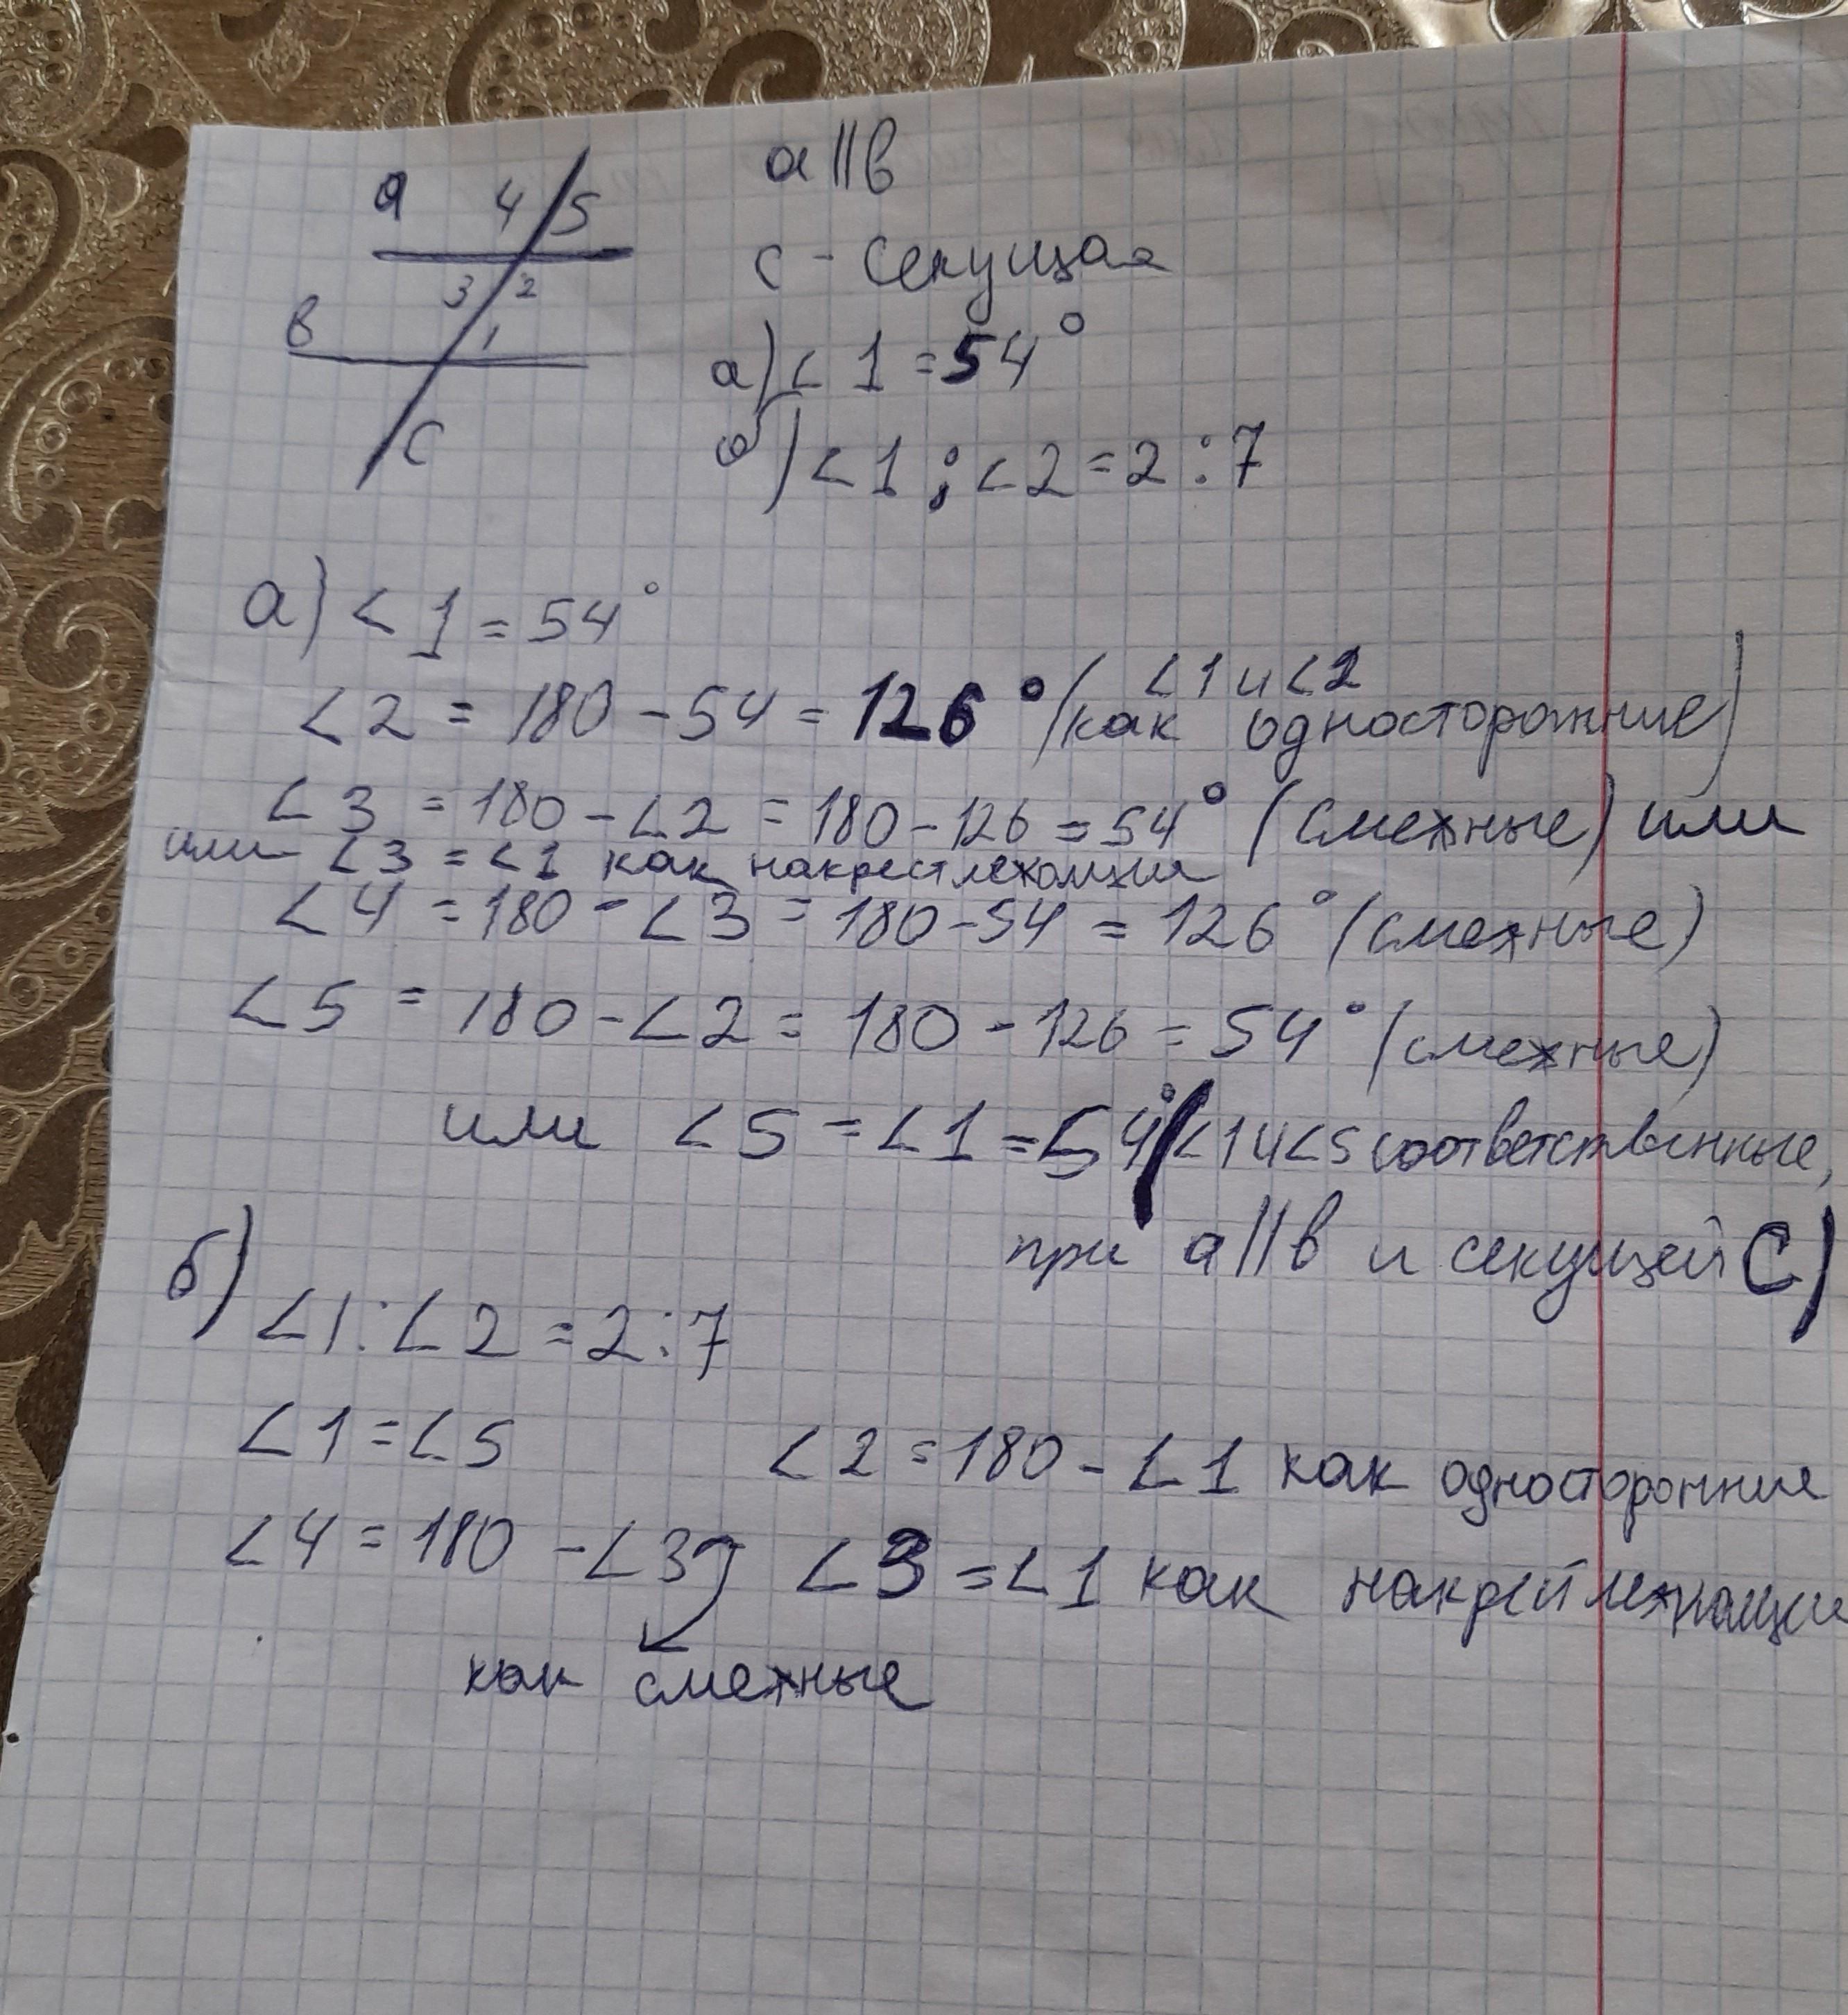 a 4 5
3 2
в 1
с
a || в
с - секущая
а) ∠1 = 54°
б) ∠1 : ∠2 = 2 : 7
а) ∠1 = 54°
∠2 = 180 - 54 = 126° (∠1 и ∠2 как односторонние)
∠3 = 180 - ∠2 = 180 - 126 = 54° (смежные) или
или ∠3 = ∠1 как накрест лежащии
∠4 = 180 - ∠3 = 180 - 54 = 126° (смежные)
∠5 = 180 - ∠2 = 180 - 126 = 54° (смежные)
или ∠5 = ∠1 = 54° (∠1 и ∠5 соответственные,
при a || в и секущей С)
б) ∠1 : ∠2 = 2 : 7
∠1 = ∠5 ∠2 = 180 - ∠1 как односторонние
∠4 = 180 - ∠3 ∠3 = ∠1 как накрест лежащии
как смежные